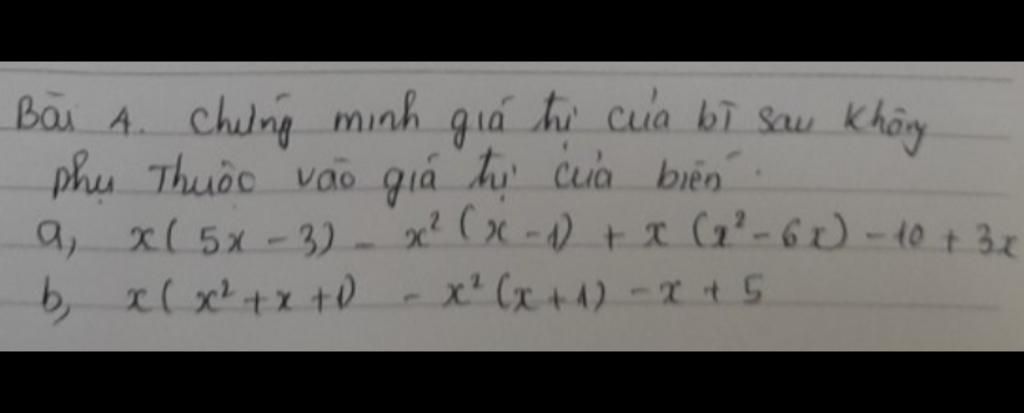 Bài 4. Chứng minh giá trị của bt sau không
phụ thuộc vào giá trị của biến.
a, x(5x - 3) - x²(x - 1) + x(x² - 6x) - 10 + 3x
b, x(x² + x + 1) - x²(x + 1) - x + 5